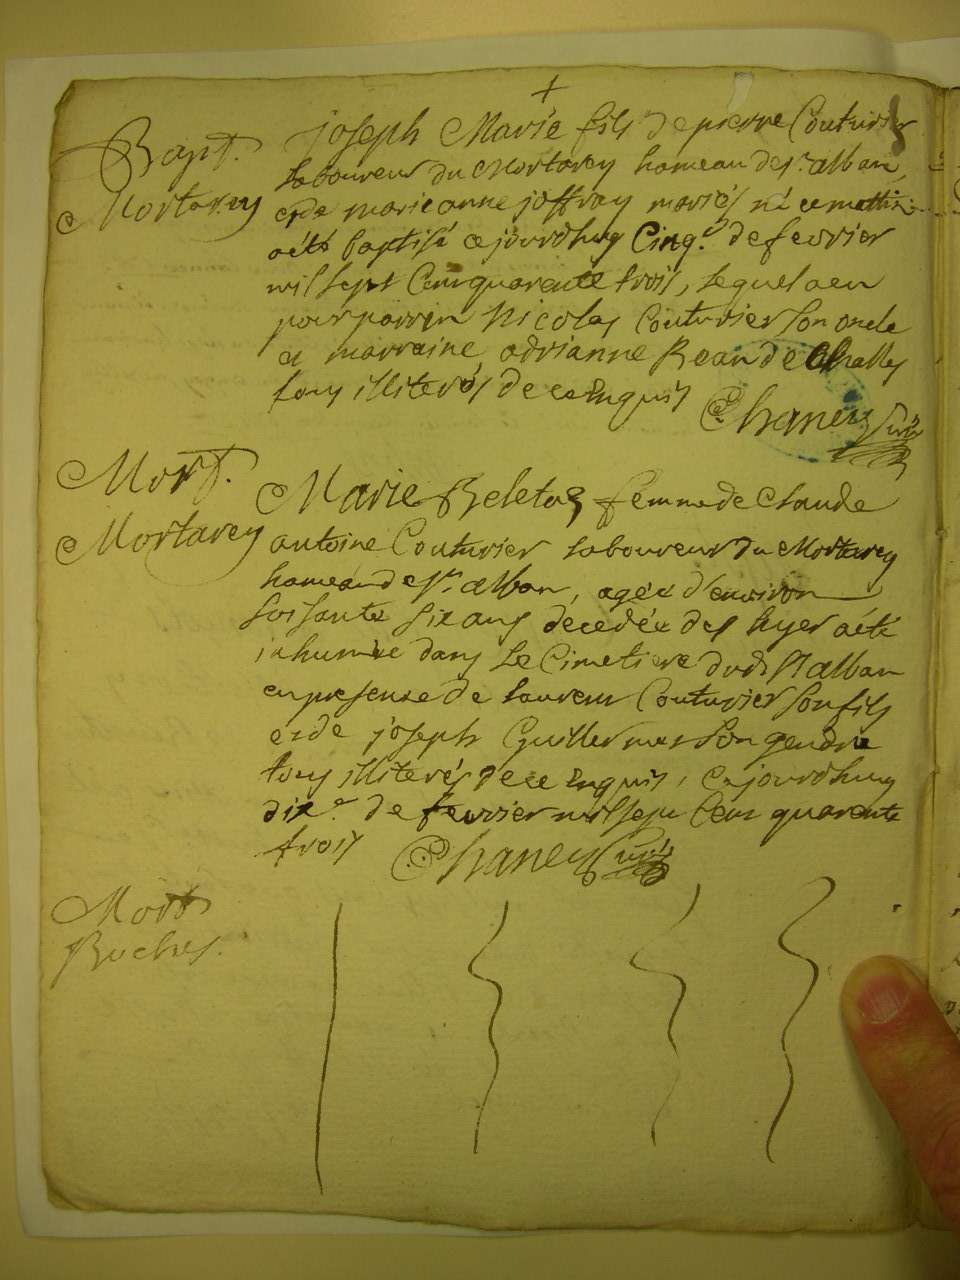 Bapt.
Mortarey
joseph Marie fils de pierre Couturier
laboureur du Mortarey hameau de st alban,
et de marieanne joffray mariés né ce mattin
aété baptisé cejourdhuy Cinq.e de fevrier
mil sept Cent quarente trois, lequel a eu
pour parrein Nicolas Couturier son oncle
et marraine adrianne de Challes
tous illiterés de ce enquis
Chaney Curé
Mort.
Mortarey
Marie femme de Claude
antoine Couturier laboureur du Mortarey
hameau de st. alban, agée d'environ
soissante six ans décedée des hyer aété
inhumée dans le Cimetiere dud. st alban
en presense de laurent Couturier son fils
et de joseph Guillermet son gendre
tous illiterés de ce enquis, cejourdhuy
dix.e de fevrier mil sept Cent quarente
trois
Chaney Curé
Mort
Ruches.